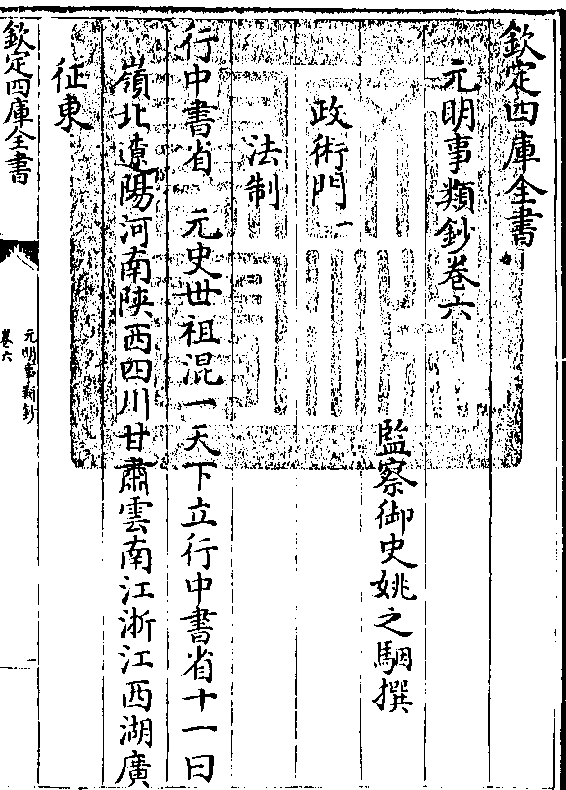 欽定四庫全書
元明事類鈔卷六
監察御史姚之駰撰
政術門一
法制
行中書省　元史世祖混一天下立行中書省十一曰
嶺北遼陽河南陝西四川甘肅雲南江浙江西湖廣
征東
欽定四庫全書
元明事類鈔
卷六